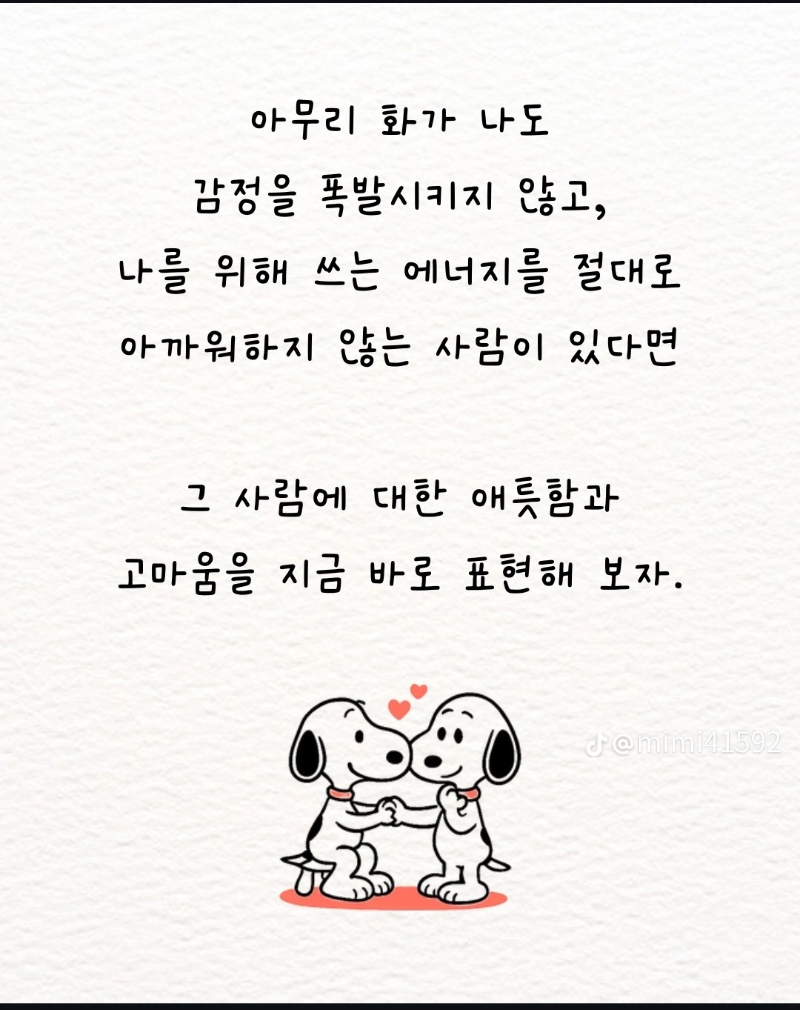 아무리 화가 나도
감정을 폭발시키지 않고,
나를 위해 쓰는 에너지를 절대로
아까워하지 않는 사람이 있다면
그 사람에 대한 애틋함과
고마움을 지금 바로 표현해 보자.
@mimi41592